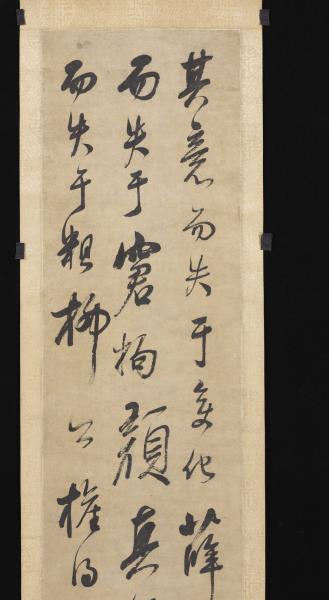 其意而失于變化薛
而失于窘拘顏真
而失于粗柳公權得